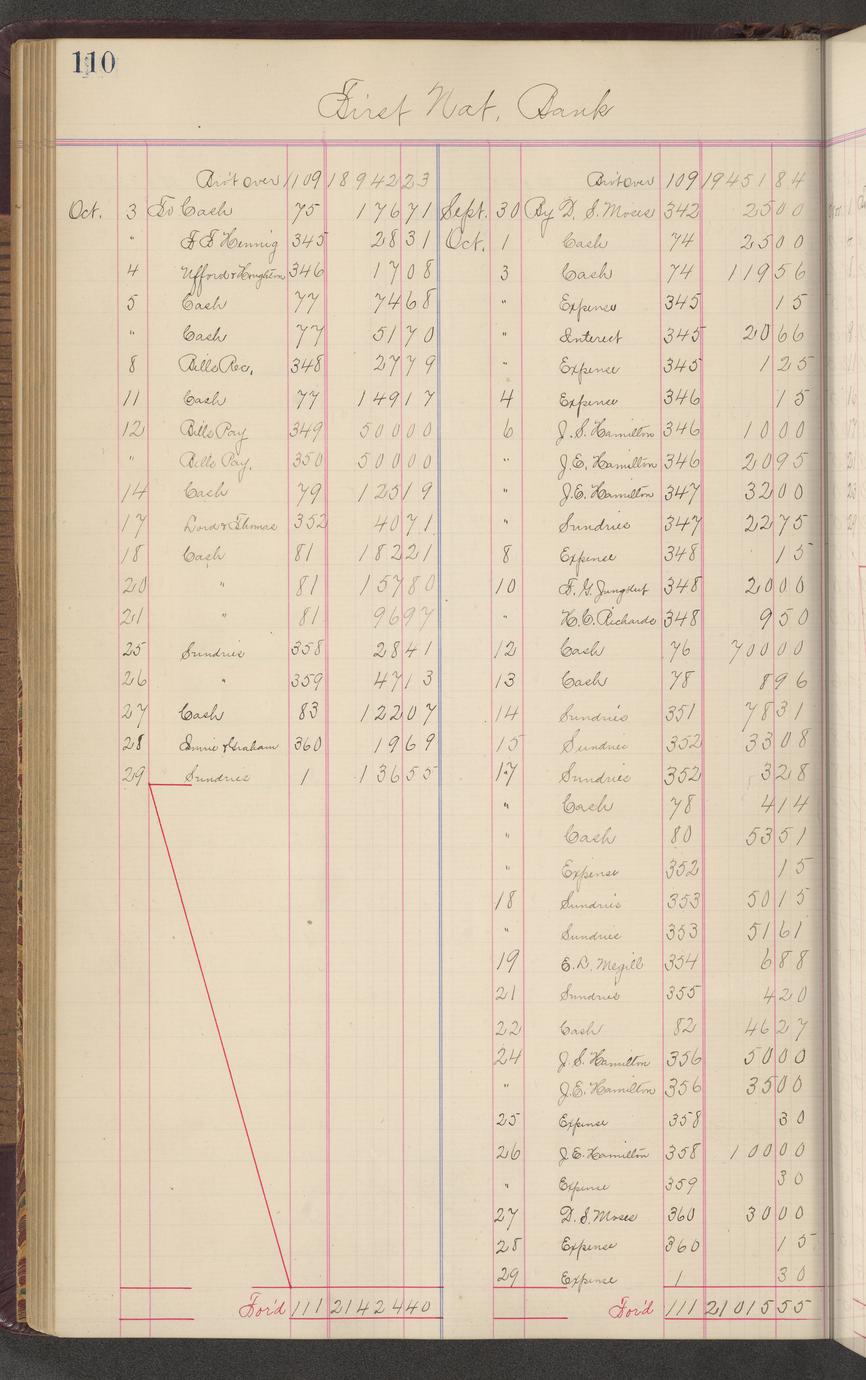 110
First Nat. Bank
Bro't over 109 18942 23
Oct. 3 To Cash 75 176 71
" F F Hennig 345 28 31
4 Ufford & Houghton 346 17 08
5 Cash 77 74 68
" Cash 77 51 70
8 Bills Rec. 348 27 79
11 Cash 77 149 17
12 Bills Pay 349 500 00
" Bills Pay. 350 500 00
14 Cash 79 125 19
17 Lord & Thomas 352 40 71
18 Cash 81 182 21
20 " 81 157 80
21 " 81 96 97
25 Sundries 358 28 41
26 " 359 47 13
27 Cash 83 122 07
28 & Graham 360 19 69
29 Sundries 1 136 55
For'd 111 21424 40
Bro't over 109 19451 84
Sept. 30 By D. S. Moses 342 25 00
Oct. 1 Cash 74 25 00
3 Cash 74 119 56
" Expense 345 15
" Interest 345 20 66
" Expense 345 1 25
4 Expense 346 15
6 J. S. Hamilton 346 10 00
" J. E. Hamilton 346 20 95
" J. E. Hamilton 347 32 00
" Sundries 347 22 75
8 Expense 348 15
10 F. G. 348 20 00
" H. C. Richards 348 9 50
12 Cash 76 700 00
13 Cash 78 8 96
14 Sundries 351 78 31
15 Sundries 352 33 08
17 Sundries 352 3 28
" Cash 78 4 14
" Cash 80 53 51
" Expense 352 15
18 Sundries 353 50 15
" Sundries 353 51 61
19 E. L. Megill 354 6 88
21 Sundries 355 4 20
22 Cash 82 46 27
24 J. S. Hamilton 356 50 00
" J. E. Hamilton 356 35 00
25 Expense 358 30
26 J. E. Hamilton 358 100 00
" Expense 359 30
27 D. S. Moses 360 30 00
28 Expense 360 15
29 Expense 1 30
For'd 111 21015 55